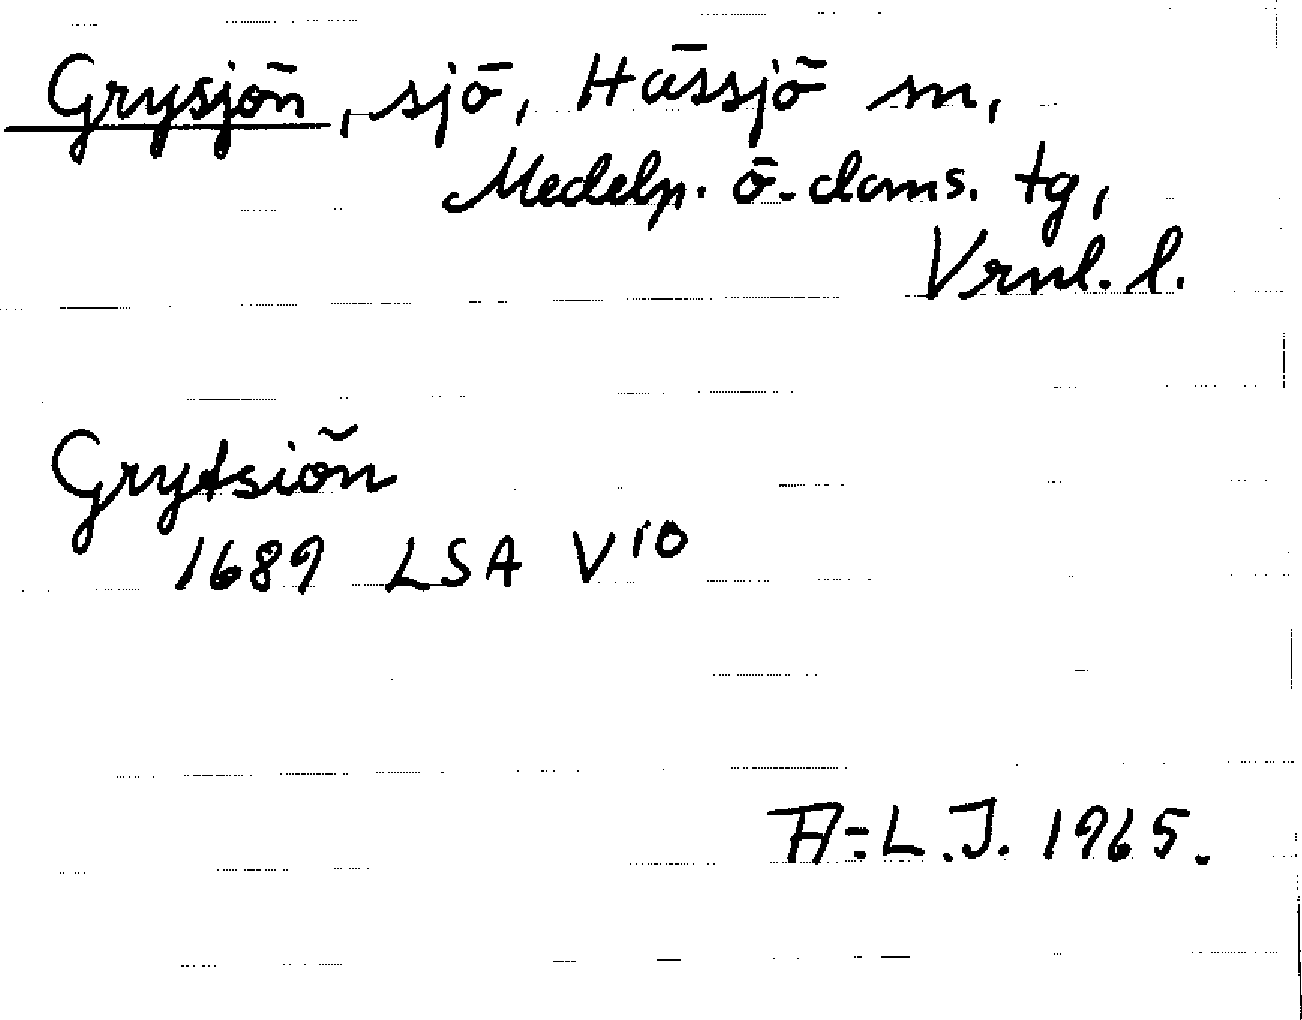 Grysjön, sjö, Hässjö sn,
Medelp. ö. doms. tg,
Vrnl. l.
Grytsiön
1689 LSA V10
A-L.J. 1965.